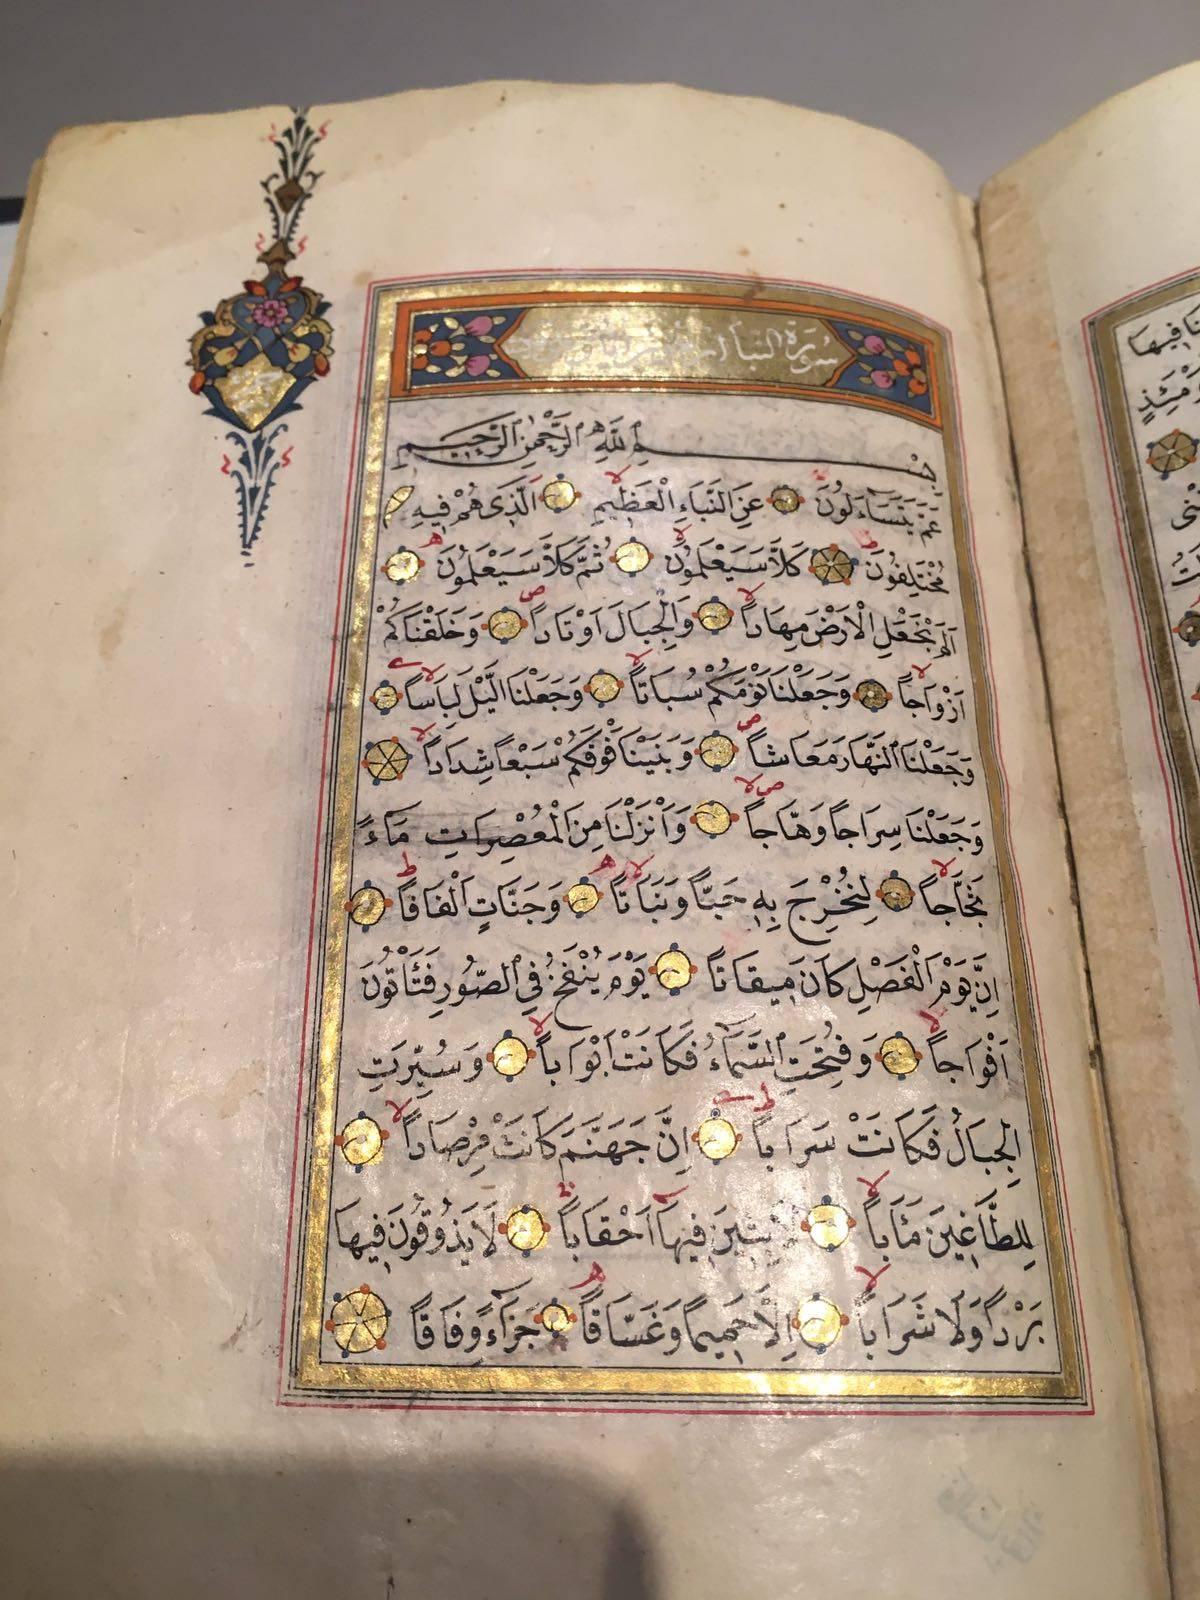 سُورَةُ النبأ
بِسْمِ اللّٰهِ الرَّحْمٰنِ الرَّحِيمِ
عَمَّ يَتَسَاءَلُونَ عَنِ النَّبَاءِ الْعَظِيمِ اَلَّذِى هُمْ فِيهِ
مُخْتَلِفُونَ كَلَّا سَيَعْلَمُونَ ثُمَّ كَلَّا سَيَعْلَمُونَ
اَلَمْ نَجْعَلِ الْاَرْضَ مِهَاداً وَالْجِبَالَ اَوْتَاداً وَخَلَقْنَاكُمْ
اَزْوَاجاً وَجَعَلْنَا نَوْمَكُمْ سُبَاتاً وَجَعَلْنَا الَّيْلَ لِبَاساً
وَجَعَلْنَا النَّهَارَ مَعَاشاً وَبَنَيْنَا فَوْقَكُمْ سَبْعاً شِدَاداً
وَجَعَلْنَا سِرَاجاً وَهَّاجاً وَاَنْزَلْنَا مِنَ الْمُعْصِرَاتِ مَاءً
ثَجَّاجاً لِنُخْرِجَ بِهِ حَبّاً وَنَبَاتاً وَجَنَّاتٍ اَلْفَافاً
اِنَّ يَوْمَ الْفَصْلِ كَانَ مِيقَاتاً يَوْمَ يُنْفَخُ فِي الصُّورِ فَتَأْتُونَ
اَفْوَاجاً وَفُتِحَتِ السَّمَاءُ فَكَانَتْ اَبْوَاباً وَسُيِّرَتِ
الْجِبَالُ فَكَانَتْ سَرَاباً اِنَّ جَهَنَّمَ كَانَتْ مِرْصَاداً
لِلطَّاغِينَ مَئَاباً لَابِثِينَ فِيهَا اَحْقَاباً لَا يَذُوقُونَ فِيهَا
بَرْداً وَلَا شَرَاباً اِلَّا حَمِيماً وَغَسَّاقاً جَزَاءً وِفَاقاً